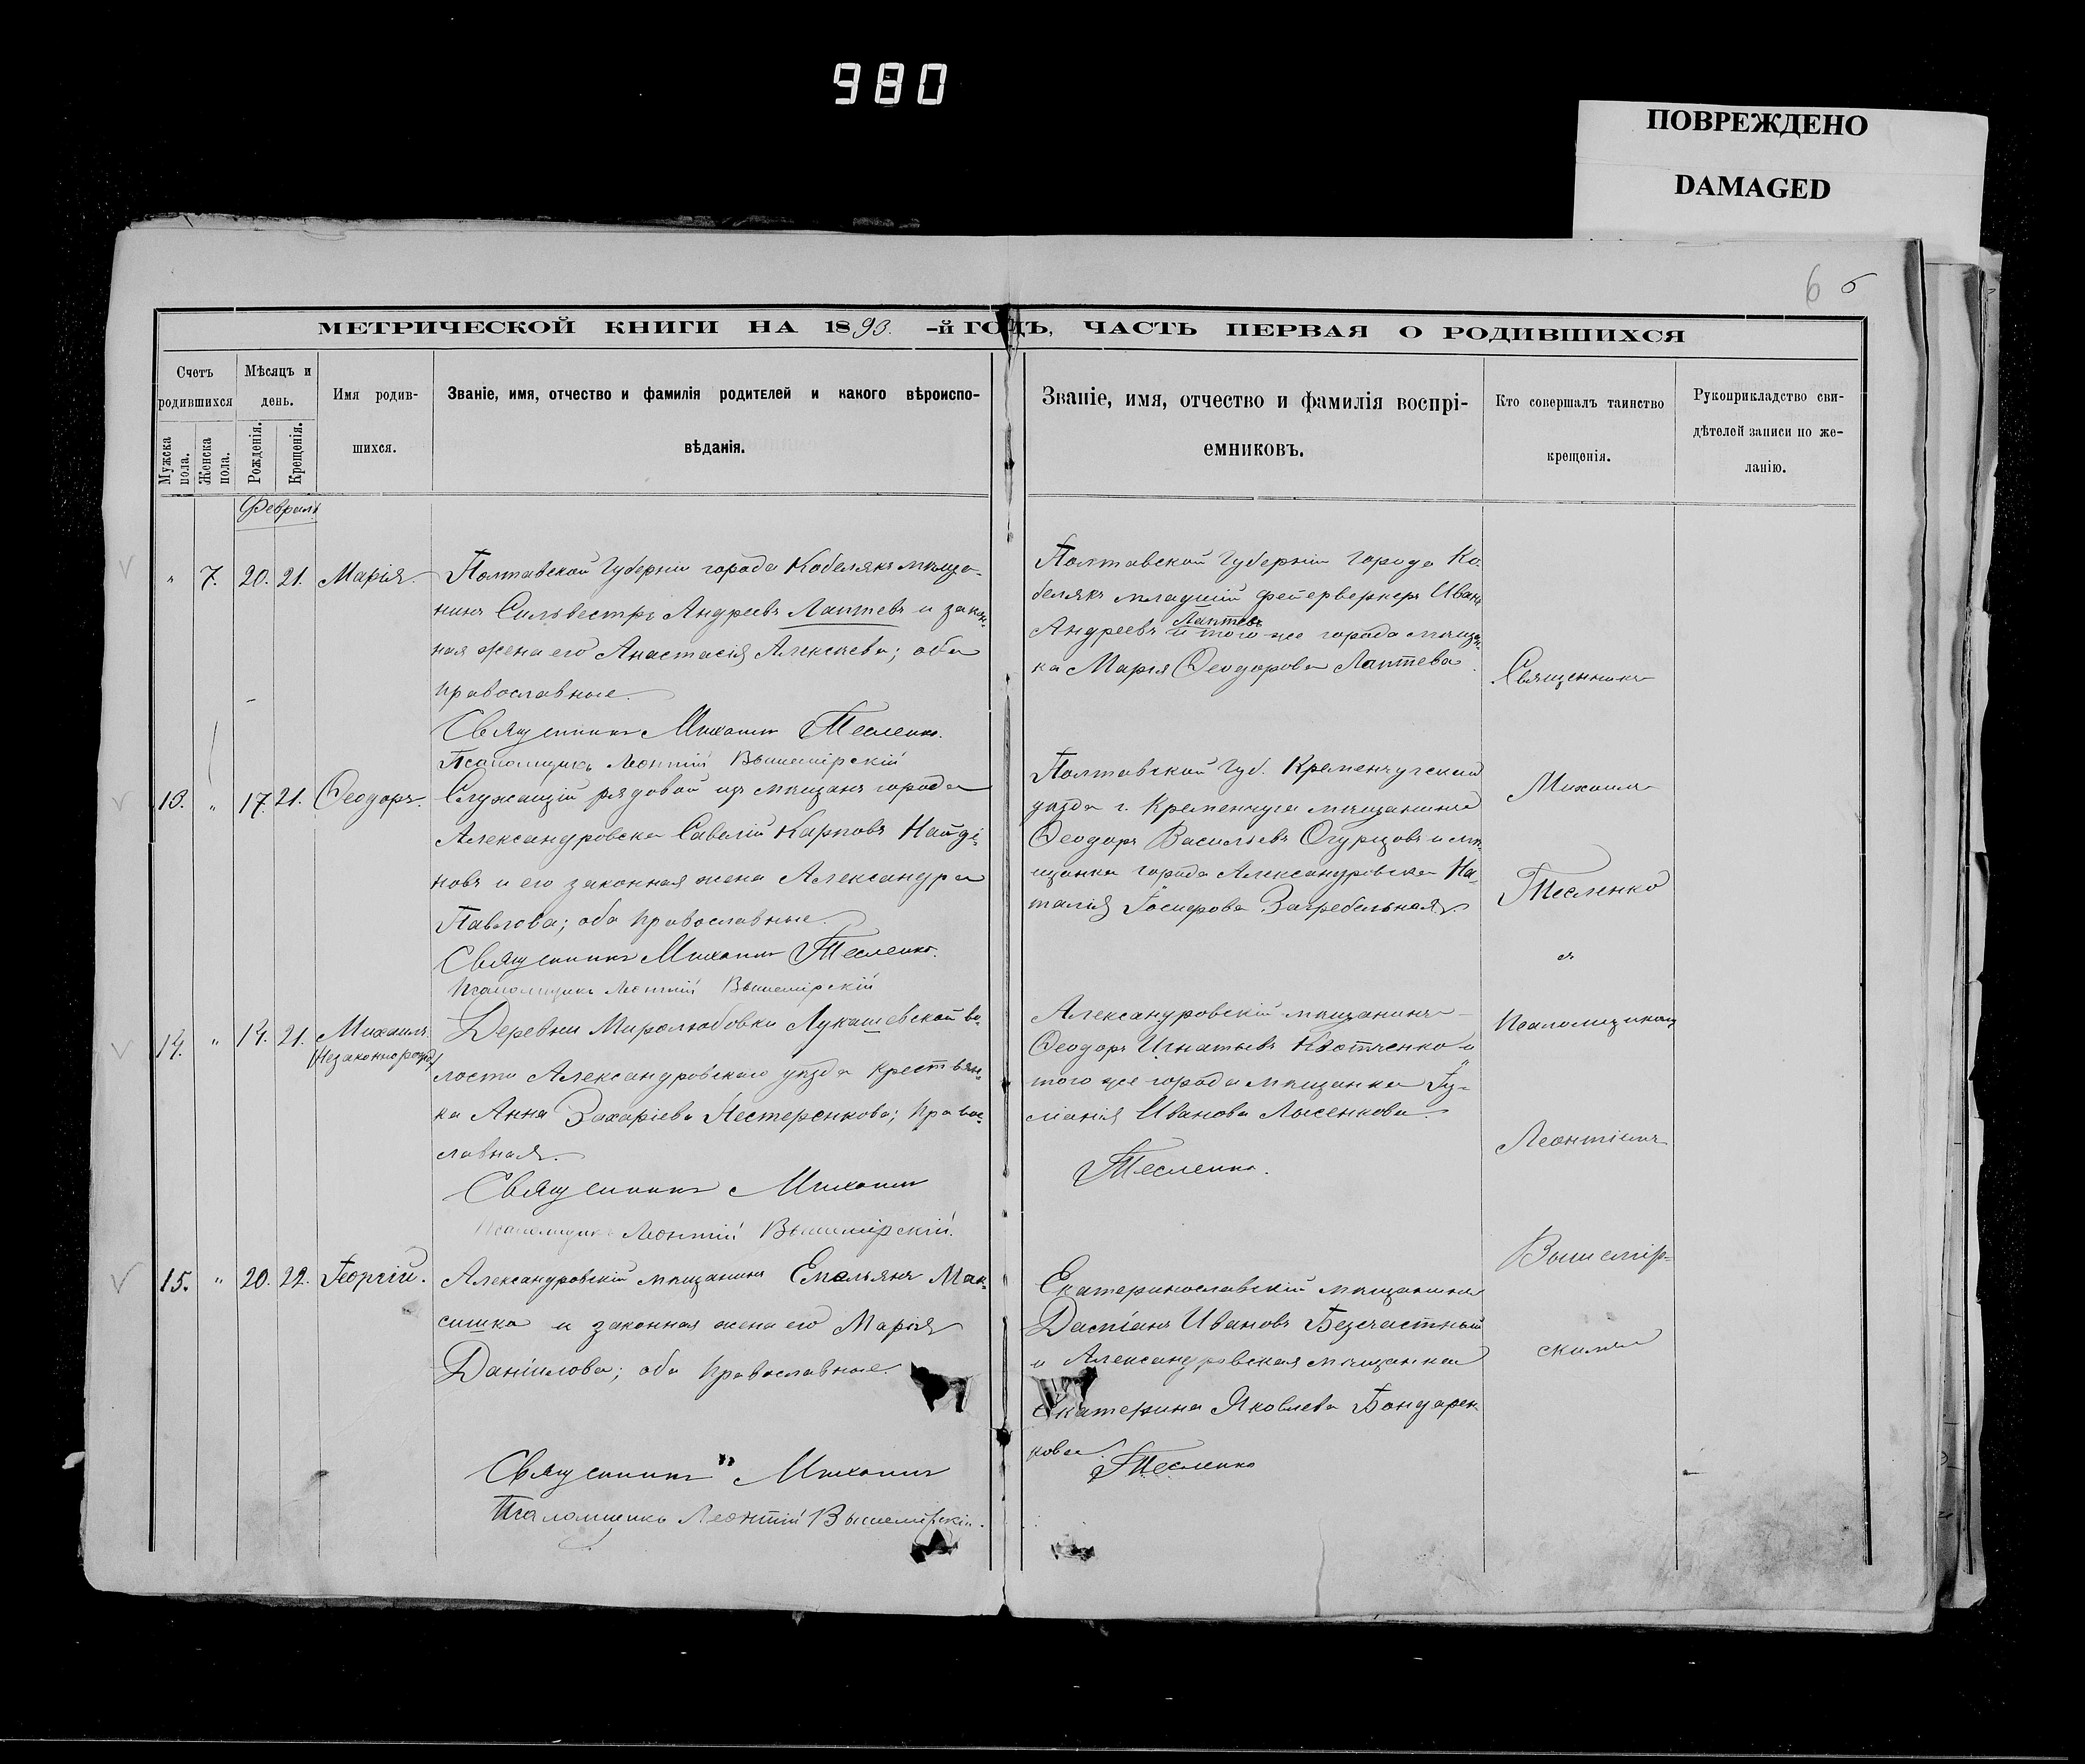 980
ПОВРЕЖДЕНО
DAMAGED
6 6
МЕТРИЧЕСКОЙ КНИГИ НА 1890. -й ГОДЪ, ЧАСТЬ ПЕРВАЯ О РОДИВШИХСЯ
Счетъ родившихся
Мужска пола.
Женска пола.
Мѣсяцъ и день.
Рожденія.
Крещенія.
Имя родив-
шихся.
Званіе, имя, отчество и фамилія родителей и какого вѣроиспо-
вѣданія.
Званіе, имя, отчество и фамилія воспрі-
емниковъ.
Кто совершалъ таинство
крещенія.
Рукоприкладство сви-
дѣтелей записи по же-
ланію.
Февраль
" 7. 20. 21. Марія.
Полтавской Губерніи города Кобелякъ мѣща-
нинъ Сильвестръ Андреевъ Лаптевъ и закон-
ная жена его Анастасія Алексѣева; оба
православные.
Священникъ Михаилъ Тесленко.
Псаломщикъ Леонтій Вышемірскій
Полтавской Губерніи города Ко-
белякъ младшій фейерверкеръ Иванъ
Андреевъ Лаптевъ и того же города мѣщан-
ка Марія Ѳеодорова Лаптева.
13. " 17. 21. Ѳеодоръ.
Служащій рядовой изъ мѣщанъ города
Александровска Савелій Карповъ Найді-
новъ и его законная жена Александра
Павлова; оба православные.
Священникъ Михаилъ Тесленко.
Псаломщикъ Леонтій Вышемірскій
Полтавской Губ. Кременчугскаго
уѣзда г. Кременчуга мѣщанинъ
Ѳеодоръ Васильевъ Огурцовъ и мѣ-
щанка города Александровска На-
талія Загребельная.
14. " 14. 21. Михаилъ
(Незаконнорожд.)
Деревни Миролюбовки Лукашевской во-
лости Александровскаго уѣзда крестьян-
ка Анна Захаріева Нестеренкова; право-
славная.
Священникъ Михаилъ
Тесленко.
Псаломщикъ Леонтій Вышемірскій.
Александровскій мѣщанинъ
Ѳеодоръ Игнатьевъ Костченко и
того же города мѣщанка Іу-
ліанія Иванова Лысенкова.
15. " 20. 22. Георгій.
Александровскій мѣщанинъ Емельянъ Мак-
симка и законная жена его Марія
Даніилова; оба православные.
Священникъ Михаилъ
Тесленко
Псаломщикъ Леонтій Вышемірскій.
Екатеринославскій мѣщанинъ
Даміанъ Ивановъ Безчастный
и Александровская мѣщанка
Екатерина Яковлева Бондарен-
кова.
Священникъ
Михаилъ
Тесленко
съ
псаломщикомъ
Леонтіемъ
Вышемір-
скимъ